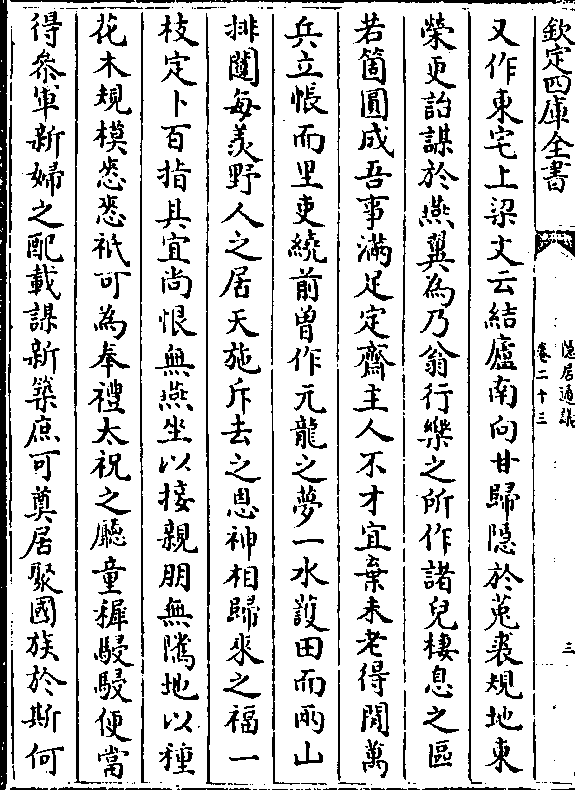 欽定四庫全書
隱居通議
卷二十三
三
又作東宅上梁文云結廬南向甘歸隱於菟裘規地東
榮更詒謀於燕翼為乃翁行樂之所作諸兒棲息之區
若箇圓成吾事滿足定齋主人不才宜棄未老得閒萬
兵立帳而里吏繞前曽作元龍之夢一水護田而兩山
排闥每羡野人之居天施斥去之恩神相歸來之福一
枝定卜百指具宜尚恨無燕坐以接親朋無隙地以種
花木規模悉悉祇可為奉禮太祝之廳童穉駸駸便當
得叅軍新婦之配載謀新築庶可奠居聚國族於斯何